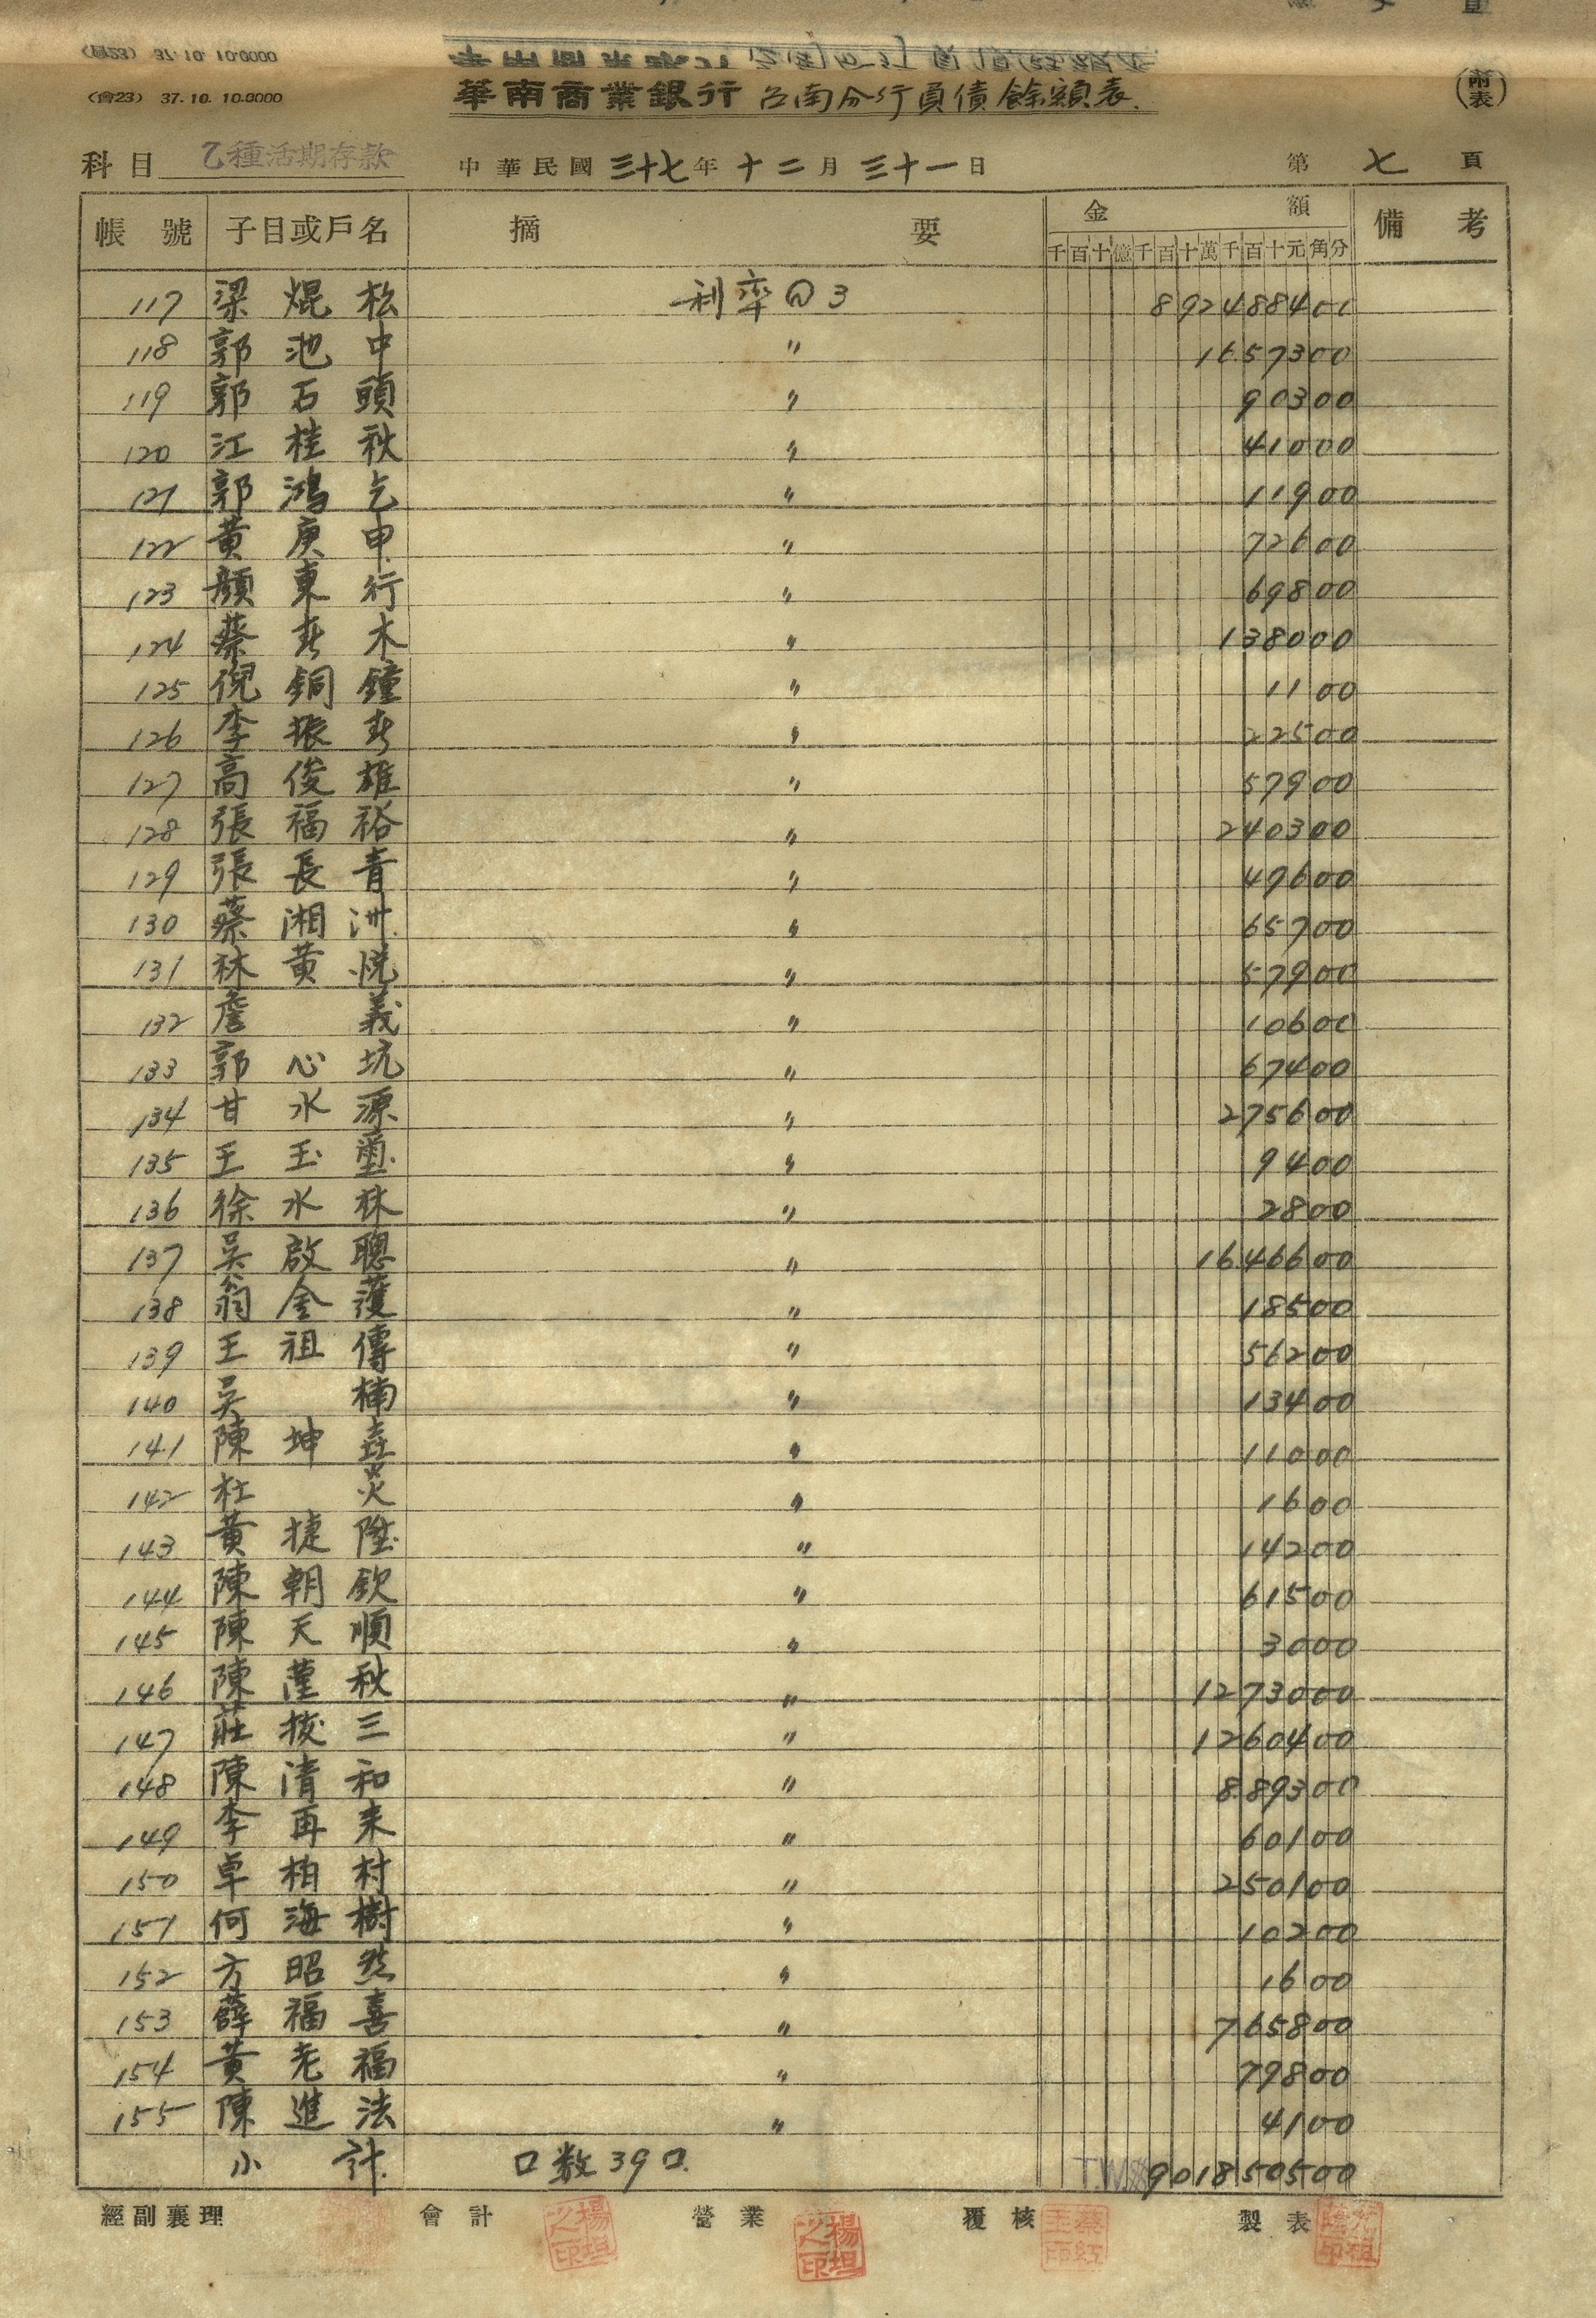 (會23) 37.10. 10.0000
(會23) 37.10. 10.0000
華南商業銀行 台南分行負債餘額表.
(附表)
科目 乙種活期存款 中華民國 三十七 年 十二 月 三十一 日 第 七 頁
帳號 子目或戶名 摘要 金額 備考
千百十億千百十萬千百十元角分
117 梁焜松 利率@3 892488400
118 郭池中 〃 1657300
119 郭石頭 〃 90300
120 江桂秋 〃 41000
121 郭鴻乞 〃 11900
122 黃庚申 〃 72600
123 顏東行 〃 69800
124 蔡春木 〃 138000
125 倪銅鐘 〃 1100
126 李振春 〃 22500
127 高俊雄 〃 57900
128 張福裕 〃 240300
129 張長青 〃 49600
130 蔡湘洲 〃 65700
131 林黃悅 〃 57900
132 詹義 〃 10600
133 郭心坑 〃 67400
134 甘水源 〃 275600
135 王玉璽 〃 9400
136 徐水林 〃 2800
137 吳啟聰 〃 1646600
138 翁金護 〃 18500
139 王祖傳 〃 56200
140 吳楠 〃 13400
141 陳坤壵 〃 11000
142 杜炎 〃 1600
143 黃捷陞 〃 14200
144 陳朝欽 〃 61500
145 陳天順 〃 3000
146 陳蓮秋 〃 1273000
147 莊拔三 〃 1260400
148 陳清和 〃 889300
149 李再来 〃 60100
150 卓柏村 〃 250100
151 何海樹 〃 10200
152 方昭然 〃 1600
153 薛福喜 〃 765800
154 黃老福 〃 79800
155 陳進法 〃 4100
小計 口数39口. 901850500
經副襄理 會計 營業 覆核 製表
楊坦之印 楊坦之印